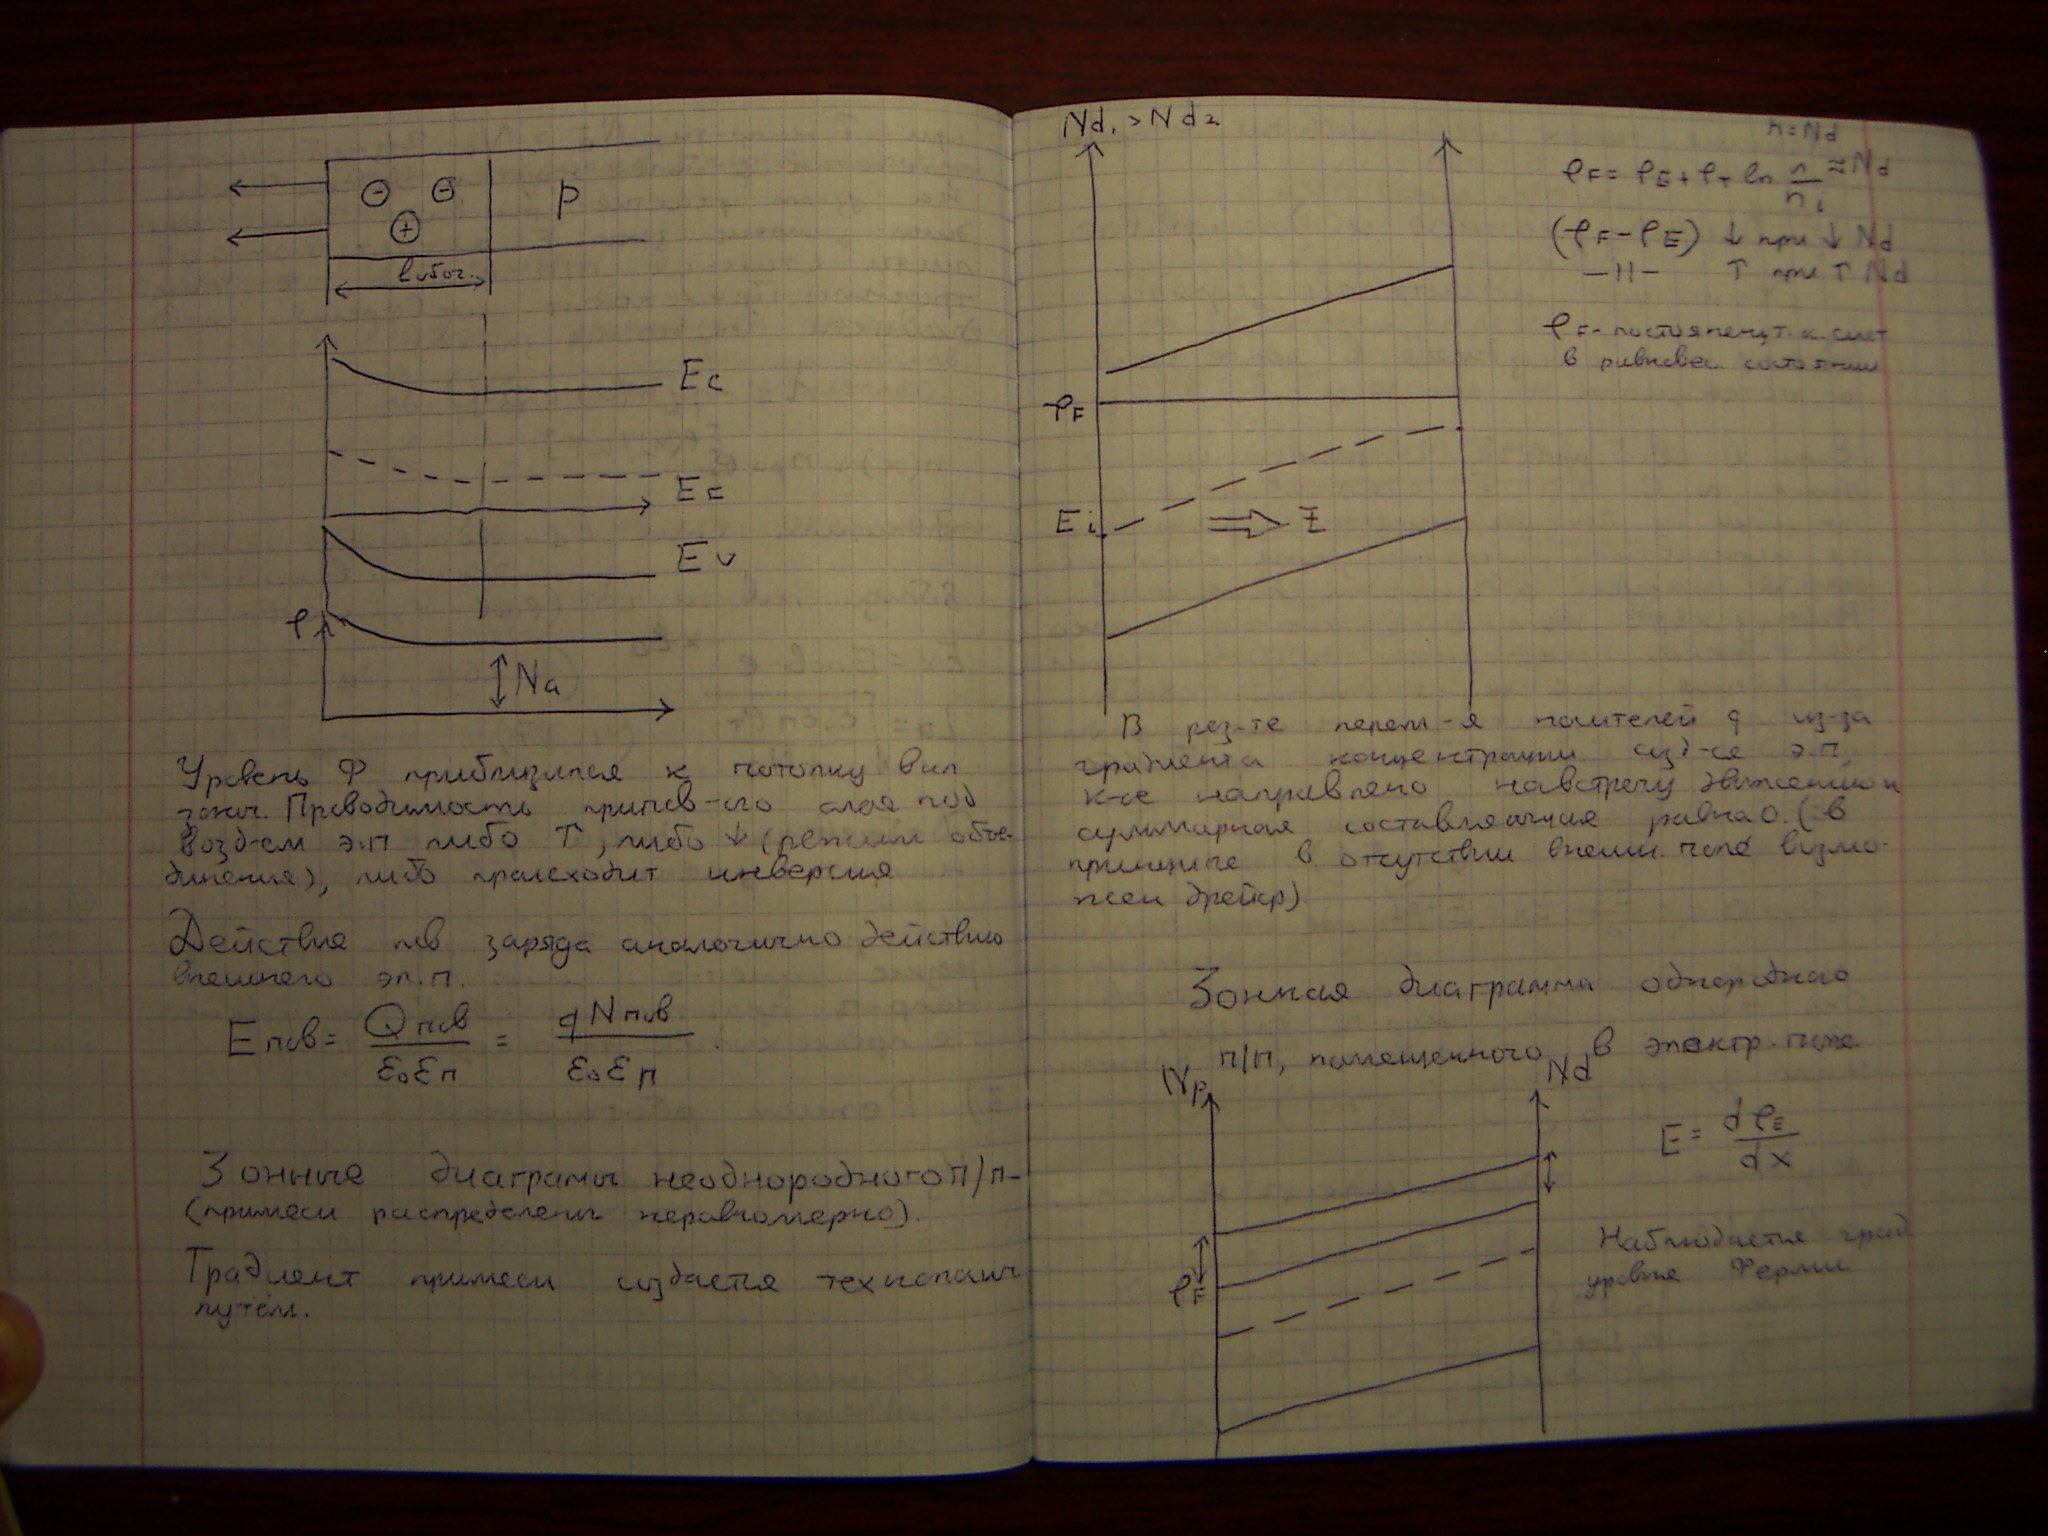 p
lобог.
Ec
EE
Ev
φ
Na
Уровень Ф приблизился к потолку вал
зоны. Проводимость припов-ого слоя под
возд-ем э.п либо ↑, либо ↓ (режим обое-
динения), либо происходит инверсия
Действие пов заряда аналогично действию
внешнего эл.п.
Eпов = Qпов / ε₀εп = qNпов / ε₀εп
Зонные диаграмы неоднородного п/п-
(примеси распределены неравномерно).
Градиент примеси создается технологич
путём.
Nd₁ > Nd₂
n=Nd
φF = φE + φT ln n/ni ≈Nd
(φF-φE) ↓ при ↓ Nd
-||- ↑ при ↑ Nd
φF- постоянен, т.к. сист
в равновес. состоянии
φF
Ei
⇒ E
В рез-те перем-я носителей q из-за
градиента концентрации созд-ся э.п,
к-ое направлено навстречу движению и
суммарная составляющая равна 0. (в
принципе в отсутствии внешн. поле возмо-
жен дрейф)
Зонная диаграмма однородного
п/п, помещенного в электр. поле
Np
Nd
E = dφE / dx
φF
Наблюдается град
уровня Ферми